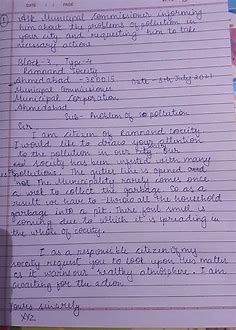 Ask Municipal Commissioner informing
him about the problems of pollution in
your city and requesting him to take
necessary actions
Block-3, Type-4
Ramnand Society
Ahmedabad - 380015
Date - 5th July 2021
Municipal Commissioner
Municipal Corporation
Ahmedabad
Sub - Problem of pollution
Sir,
I am citizen of Ramnand society
I would like to draw your attention
to the pollution in our city. Our
society has been injected with many
pollutions. The gutter line is opened and
not The Municipality rarely comes once
a wek to collect the garbage. So as a
result we have to throw all the household
garbage into a pit. There foul smell is
coming due to which it is spreading in
the whole of society.
I as a responsible citizen of my
society request you to look upon this matter
as it want our healthy atmosphere. I am
awaiting for the action
Yours sincerely
XYZ